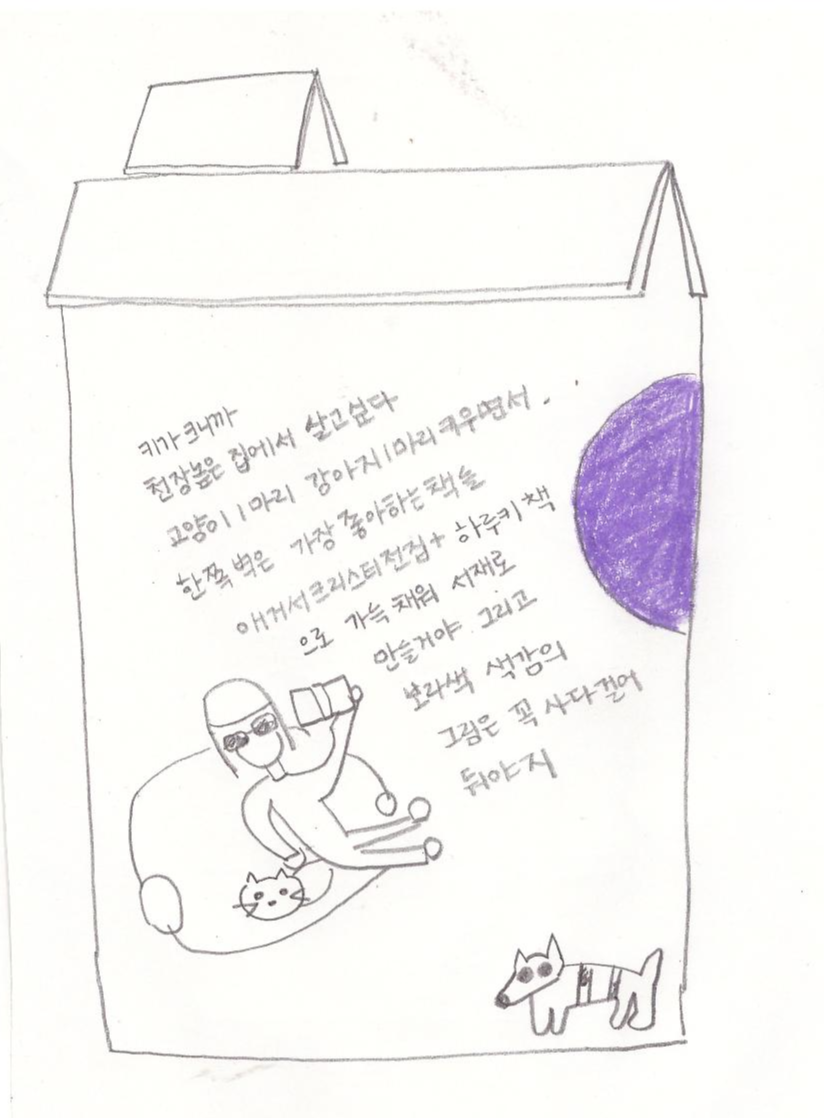 키가 크니까
천장높은 집에서 살고싶다
고양이 1마리 강아지 1마리 키우면서..
한쪽 벽은 가장 좋아하는 책들
애거서크리스티전집+ 하루키 책
으로 가득 채워 서재로
만들거야 그리고
보라색 색감의
그림은 꼭 사다 걸어
둬야지